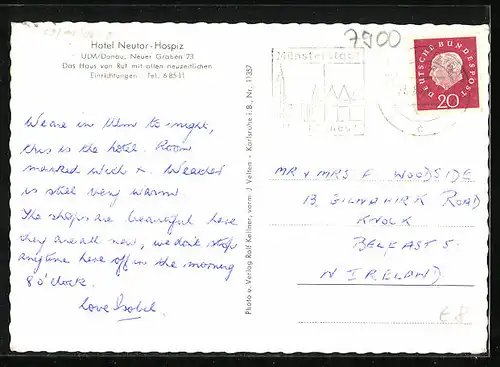 Hotel Neutor-Hospiz
ULM/Donau, Neuer Graben 23
Das Haus von Ruf mit allen neuzeitlichen
Einrichtungen Tel. 6 85 11
7900
Münsterstadt
DEUTSCHE BUNDESPOST
20
c
We are in Ulm to night,
this is the hotel. Room
marked with x. Weather
is still very warm.
The shops are beautiful here
they are all new, we don't stop
anytime here off in the morning
8 o'clock.
Love Isobel.
Photo u. Verlag Rolf Kellner, vorm. J. Velten - Karlsruhe i. B., Nr. 11357
MR & MRS F WOODSIDE
13, GILNAHIRK ROAD
KNOCK
BELFAST 5.
N IRELAND